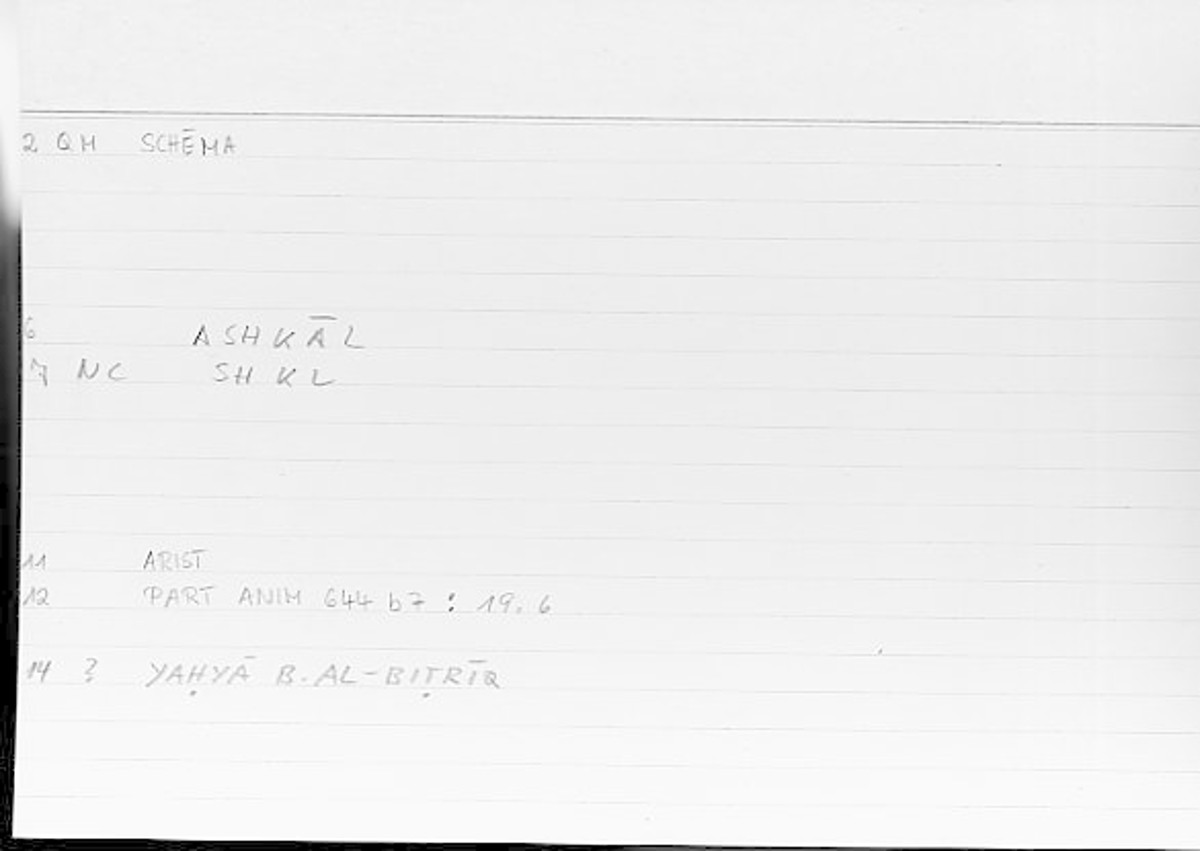 2 QM SCHĒMA
6 ASHKĀL
7 NC SHKL
11 ARIST
12 PART ANIM 644 b7 : 19. 6
14 ? YAḤYĀ B. AL-BIṬRĪQ